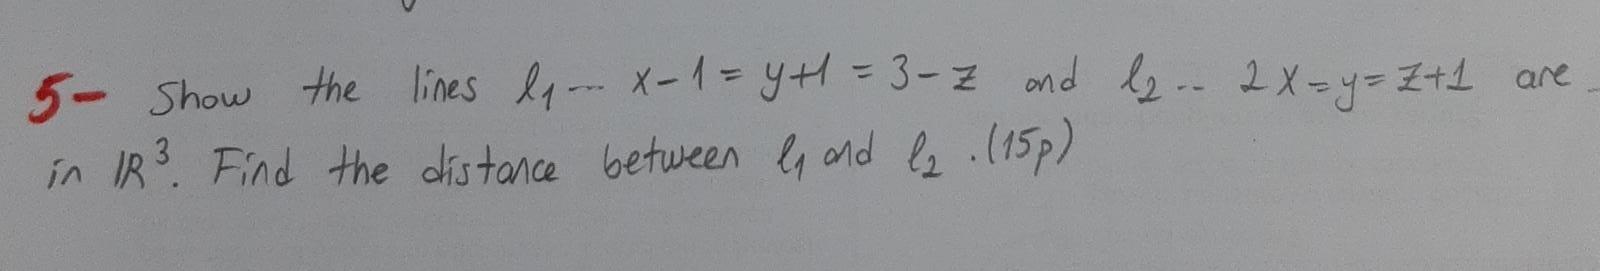 5- Show the lines l₁ --- x-1 = y+1 = 3-z and l₂ -- 2x=y=z+1 are
in ℝ³. Find the distance between l₁ and l₂. (15p)